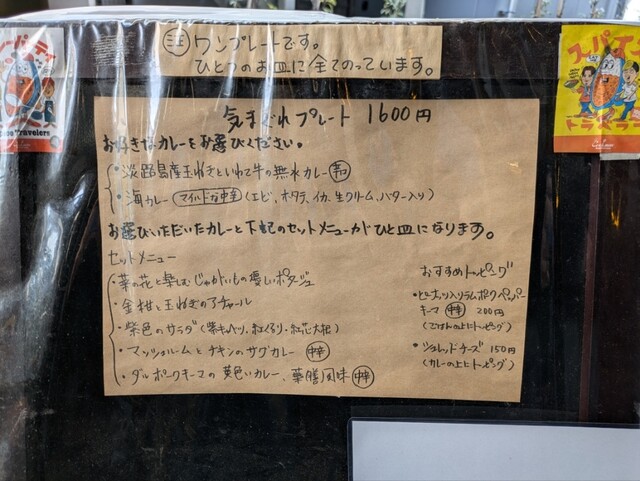 注 ワンプレートです。
ひとつのお皿に全てのっています。
スーパースパイス
トラベラーズ
Travelers
気まぐれプレート 1600円
お好きなカレーをお選びください。
・淡路島産玉ねぎといわて牛の無水カレー 中辛
・海カレー マイルドな中辛 (エビ、ホタテ、イカ、生クリーム、バター入り)
お選びいただいたカレーと下記のセットメニューがひと皿になります。
セットメニュー
・菜の花と
じゃがいもの優しいポタージュ
・金柑と玉ねぎのアチャール
・紫色のサラダ (紫キャベツ、紅くるり、紅芯大根)
・マッシュルームとチキンのサグカレー 中辛
・ダルポークキーマの黄色いカレー、薬膳風味 中辛
おすすめトッピング
・ピーナッツ入りラムポークペッパー
キーマ 中辛 200円
(ごはんの上にトッピング)
・シュレッドチーズ 150円
(カレーの上にトッピング)